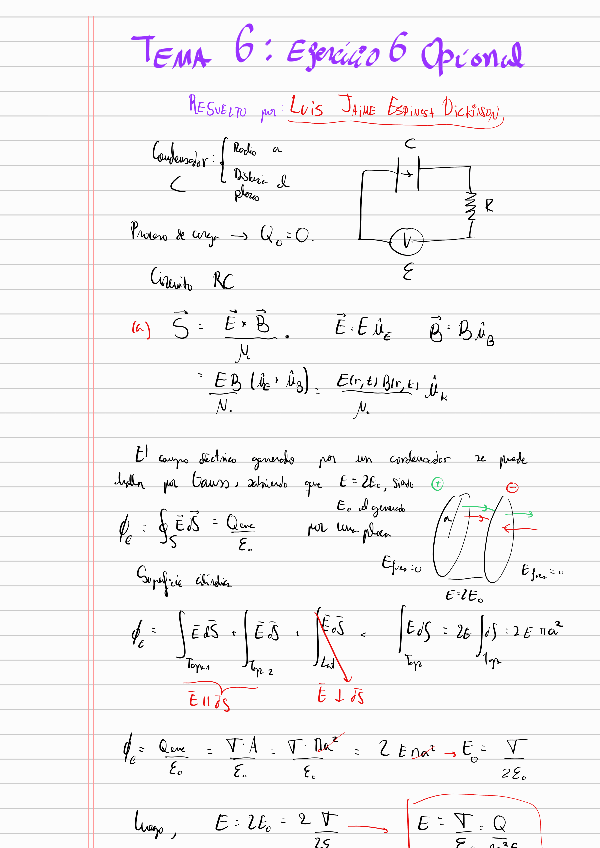 TEMA 6: Ejercicio 6 Opcional
RESUELTO por: LUIS JAIME ESPINOSA DICKINSON,
Condensador: { Radio a
C Distancia d placas
C
R
V
ε
Proceso de carga → Q₀ = 0.
Circuito RC
(a) S⃗ = E⃗ × B⃗ / μ₀ . E⃗ = E û_E B⃗ = B û_B
= EB/μ₀ (û_E × û_B) = E(r,t) B(r,t)/μ₀ û_k
El campo eléctrico generado por un condensador se puede
hallar por Gauss, sabiendo que E = 2E₀, siendo
E₀ el generado
por una placa
+ −
a
E_fuera = 0 E_fuera = 0
E = 2E₀
ϕ_E = ∮_S E⃗ dS⃗ = Q_enc / ε₀
Superficie cilíndrica
ϕ_E = ∫_Tapa 1 E⃗ dS⃗ + ∫_Tapa 2 E⃗ dS⃗ + ∫_Lat E⃗ dS⃗ = ∫_Tapa E dS = 2E ∫_Tapa dS = 2E πa²
E⃗ ∥ dS⃗ E⃗ ⊥ dS⃗
ϕ_E = Q_enc/ε₀ = ∇·A/ε₀ = ∇·πa²/ε₀ = 2 E πa² → E₀ = ∇/2ε₀
Luego, E = 2E₀ = 2 ∇/2ε → E = ∇ = Q